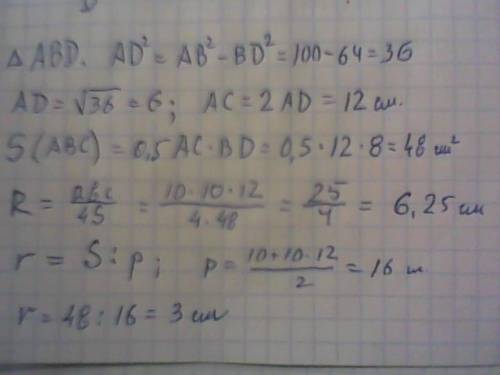 △ ABD. AD² = AB² - BD² = 100 - 64 = 36
AD = √36 = 6; AC = 2AD = 12 см.
S(ABC) = 0,5 AC · BD = 0,5 · 12 · 8 = 48 см²
R = abc/4S = 10·10·12/4·48 = 25/4 = 6,25 см
r = S : p; p = 10+10·12/2 = 16 см
r = 48 : 16 = 3 см